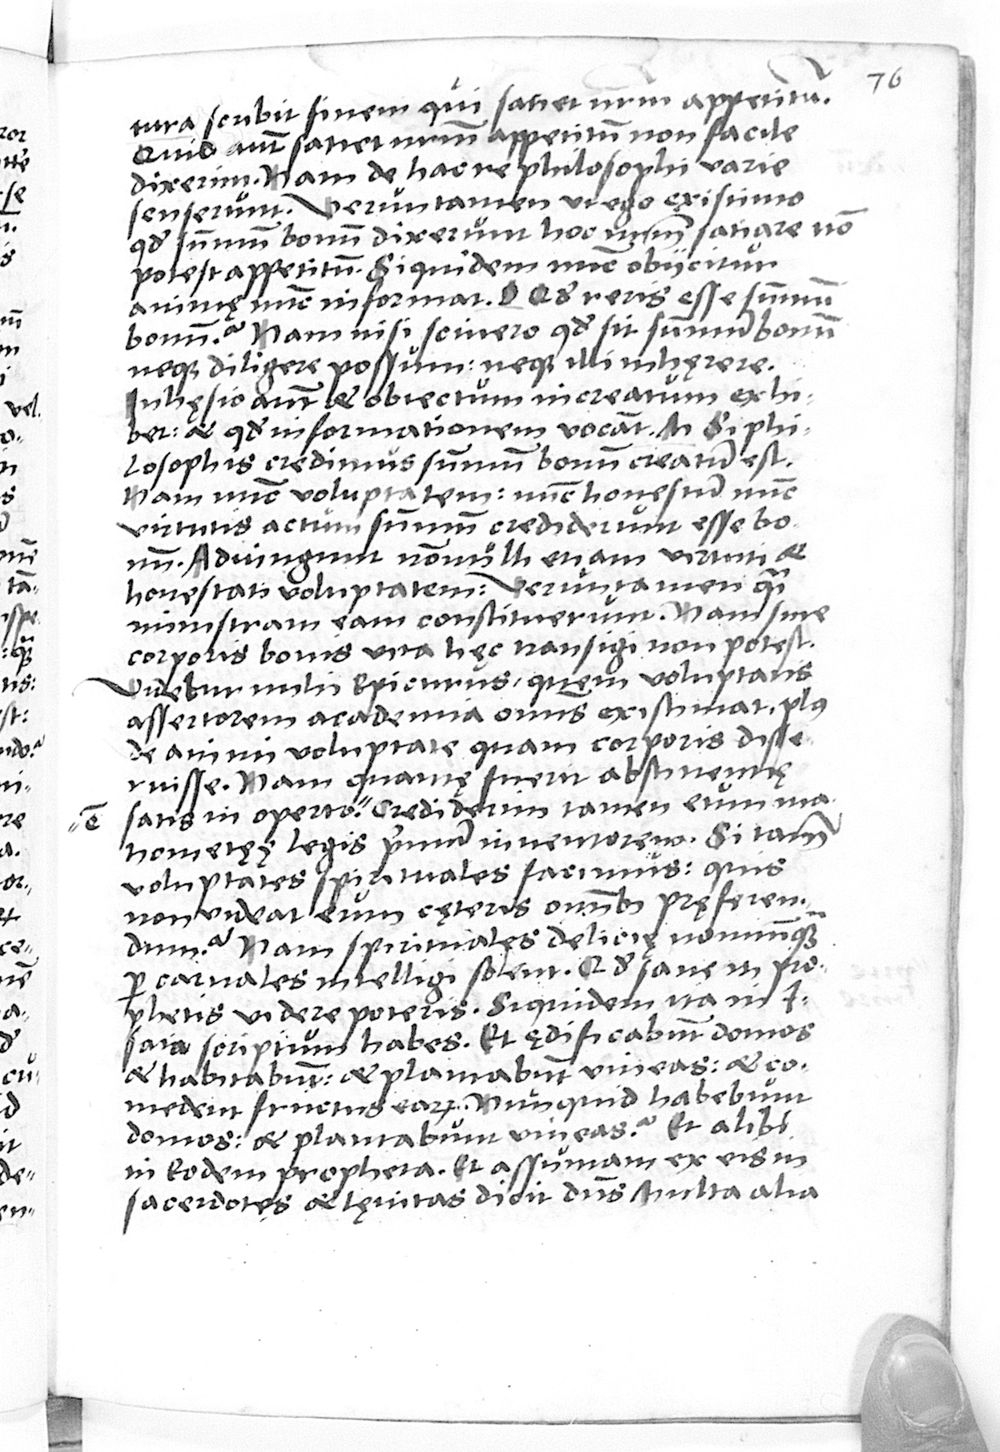 76
tura scribit finem qui satiet nrm̄ appetitū.
Quid aut̄ satiet nrm̄ appetitū non facile
dixerim. Nam de hac re philosophi varie
senserunt. Veruntamen ut ego existimo
qđ sum̄ bonū dixerunt hoc nrm̄ satiare nō
potest appetitū. Siquidem nunc obijcitur
animę nunc informat. Qđ reris esse sum̄ū
bonū? Nam nisi scivero qđ sit sum̄ū bonū
neqꝫ diligere possum: neqꝫ illi inhęrere.
Inhęsio aut̄ & obiectum increatum exhi-
bet: & qđ informationem vocāt. Si phi-
losophis credimus sum̄ū bonū creatū est.
Nam nunc voluptatem: nunc honestū nunc
virtutis actum sum̄ū crediderunt esse bo
nū. Adiungunt nōnulli etiam virtuti &
honestati voluptatem: Veruntamen q̄si
ministram eam constituerunt. Nam sine
corporis bonis vita hęc transigi non potest.
Videtur mihi Epicurus, quem voluptatis
assertorem academia omīs existimat, plus
de animi voluptate quam corporis disse-
ruisse. Nam quantę fuerit abstinentię
"ē satis in operto." Crediderim tamen eum ma-
hometęę legis p̄mū inventorem. Si tam̄
voluptates spirituales facimus: quis
non videat eum cęteris omībꝫ pręferen-
dum? Nam spirituales delicię nonnunqꝫ
ꝑ carnales intelligi solent. Qđ sane in pro-
phetis videre poteris. Siquidem ita in I-
saia scriptum habes. Et ędificabūt domos
& habitabūt: & plantabūt vineas: & co-
medent fructus eaꝝ. Nunquid habebunt
domos: & plantabunt vineas? Et alibi
in eodem propheta. Et assumam ex eis in
sacerdotes & lęvitas dicit dn̄s Multa alia